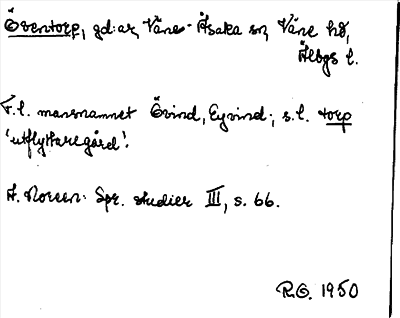 Öventorp, gd:ar, Väne-Åsaka sn, Väne hd,
Älbgs l.
F.l. mansnamnet Övind, Eyvind; s.l. torp
'utflyttaregård'.
A. Noreen: Spr. studier III, s. 66.
R.O. 1950